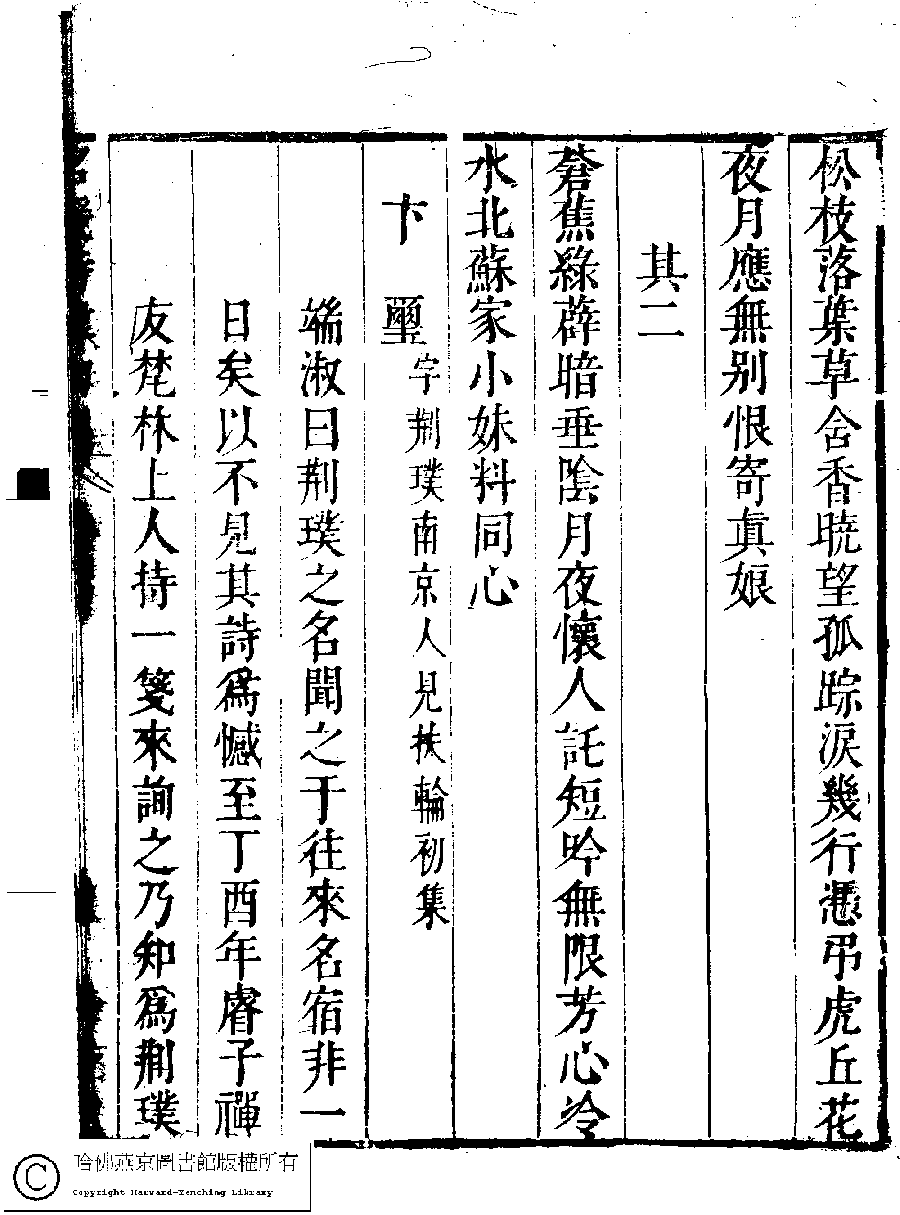 松枝落葉草含香晓望孤踪淚幾行憑弔虎丘花
夜月應無别恨寄真娘
其二
蒼蕉綠薜暗垂陰月夜懷人託短吟無限芳心冷
水北蘇家小妹料同心
卞璽字荆璞南京人見扶輪初集
端淑曰荆璞之名聞之于往來名宿非一
日矣以不見其詩爲憾至丁酉年睿子禪
友梵林上人持一箋來詢之乃知爲荆璞
哈佛燕京圖書館版權所有
Copyright Harvard-Yenching Library